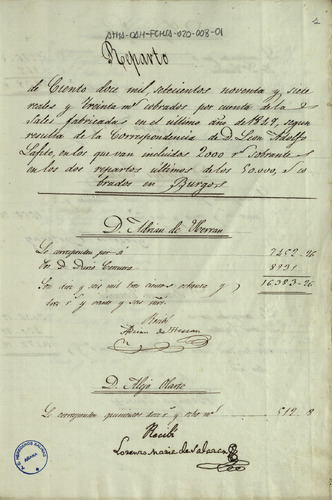 AHSA-OAH-FCHSA-020-003-01
2
Reparto
de Ciento doce mil, setecientos noventa y siete
reales y treinta ms cobrados por cuenta de las
Sales fabricadas en el último año de 1829, segun
resulta de la Correspondencia de D. Leon Adolfo
Lafite, en los que van incluidos 2000 rs sobrantes
en los dos repartos ultimos de los 50.000, co-
brados en Burgos
D. Adrian de Herran
Le corresponden por si 7492-26
Por D. 8891-
Son diez y seis mil tres cientos ochenta y
tres rs y veinte y seis mrs 16.383-26
Recibi
Adrian de Herran
D. Alejo Olarte
Le corresponden quinientos doce rs y ocho ms 512-8
Recibi
Lorenzo Maria de Salazar